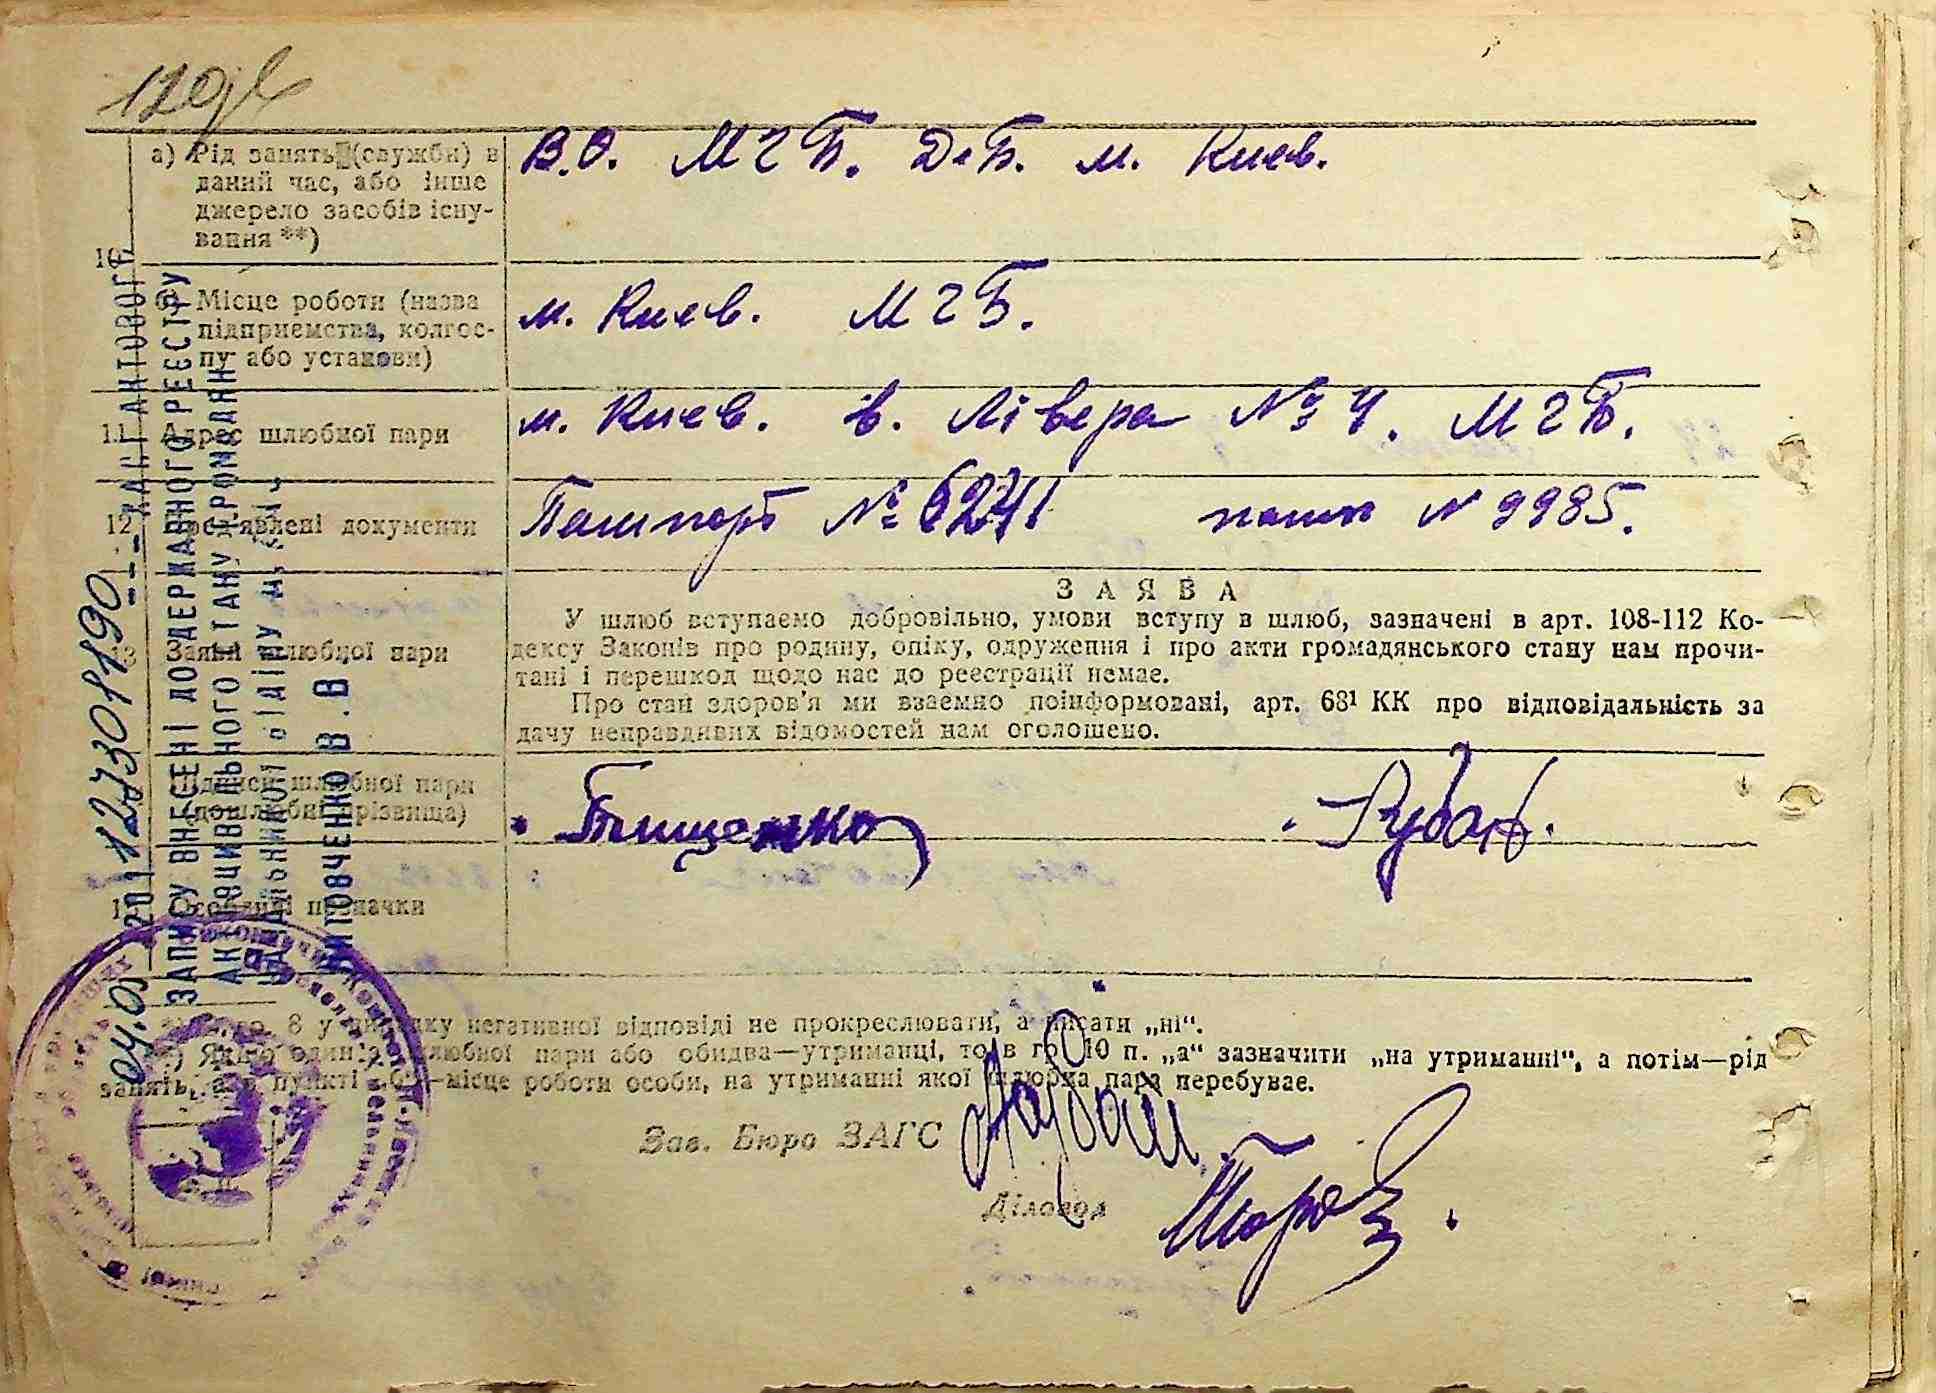 а) Рід занять (служби) в
даний час, або інше
джерело засобів існу-
вання **)
В.О. МГБ. м. Киев.
10
Місце роботи (назва
підприємства, колгос-
пу або установи)
м. Киев. МГБ.
11 Адрес шлюбної пари
м. Киев. в. Лівера № 4. МГБ.
12 Пред'явлені документи
Пашпорт № 6271 пашп N 9985.
13 Заява шлюбної пари
ЗАЯВА
У шлюб вступаємо добровільно, умови вступу в шлюб, зазначені в арт. 108-112 Ко-
дексу Законів про родину, опіку, одруження і про акти громадянського стану нам прочи-
тані і перешкод щодо нас до реєстрації немає.
Про стан здоров'я ми взаємно поінформовані, арт. 68¹ КК про відповідальність за
дачу неправдивих відомостей нам оголошено.
Підписи шлюбної пари
(дошлюбні прізвища)
Тищенко Рубан.
Особливі позначки
8 у випадку негативної відповіді не прокреслювати, а писати „ні“.
Якщо один з шлюбної пари або обидва—утриманці, то в гр. 10 п. „а“ зазначити „на утриманні“, а потім—рід
занять, а в пункті „б“—місце роботи особи, на утриманні якої шлюбна пара перебуває.
Зав. Бюро ЗАГС
Діловод
ЗАПИСУ ВНЕСЕНІ ДО ДЕРЖАВНОГО РЕЄСТРУ
АКТІВ ЦИВІЛЬНОГО СТАНУ ГРОМАДЯН